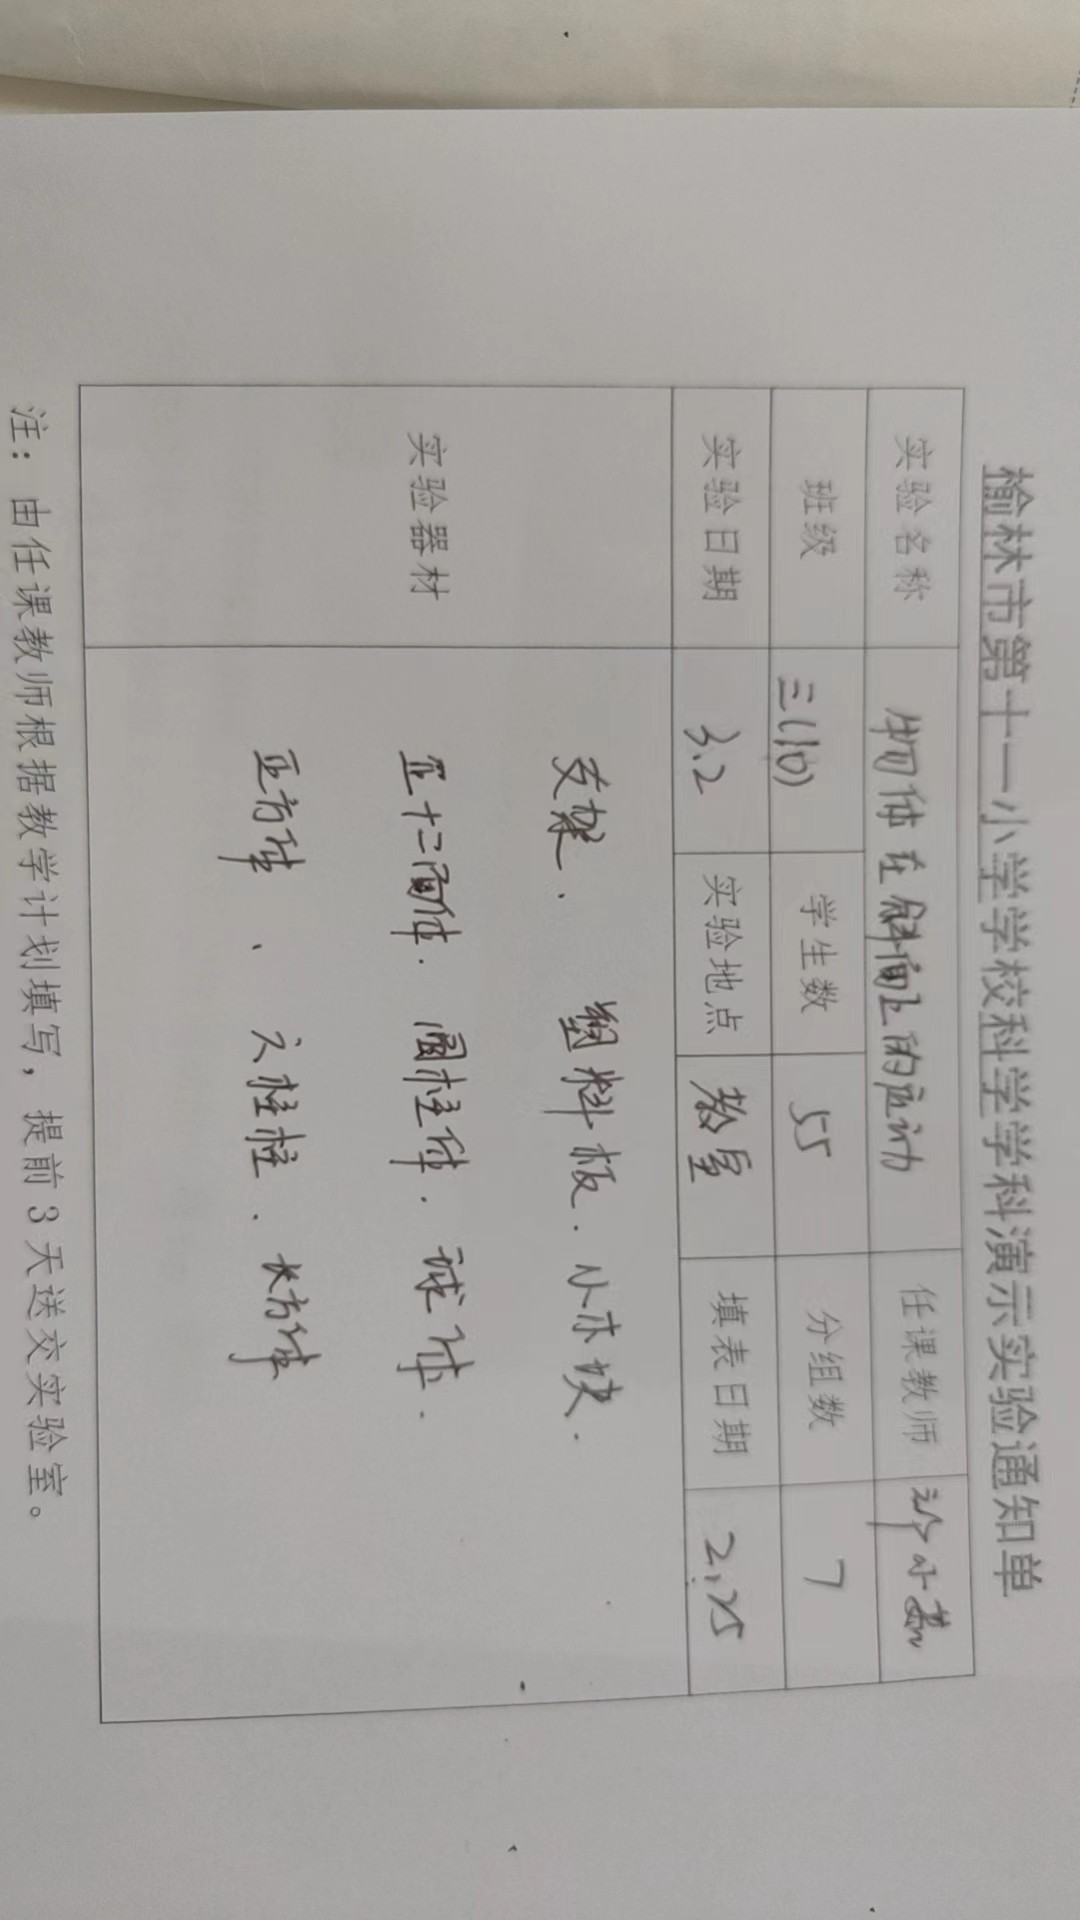 榆林市第十一小学学校科学学科演示实验通知单
实验名称 物体在斜面上的运动 任课教师
班级 三(10) 学生数 55 分组数 7
实验日期 3.2 实验地点 教室 填表日期 2.25
实验器材
支架. 塑料板. 小木块.
正十二面体. 圆柱体. 球体.
正方体、六柱柱. 长方体
注：由任课教师根据教学计划填写，提前3天送交实验室。